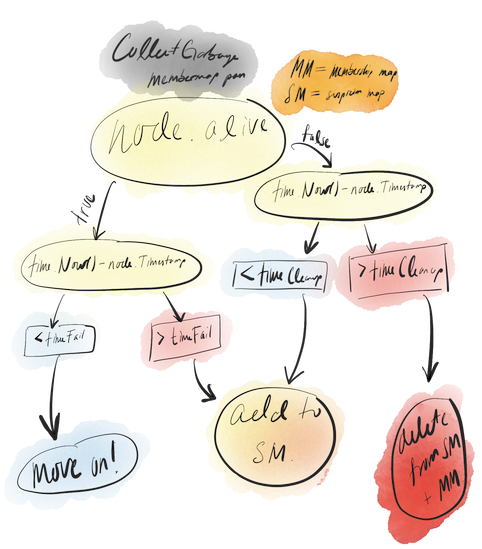 Collect Garbage
membermap pan
MM = membership map
SM = suspicion map
node.alive
false
true
time.Now() - node.Timestamp
time.Now() - node.Timestamp
< timeCleanup
> timeCleanup
< timeFail
> timeFail
add to
SM.
move on!
delete
from SM
+ MM